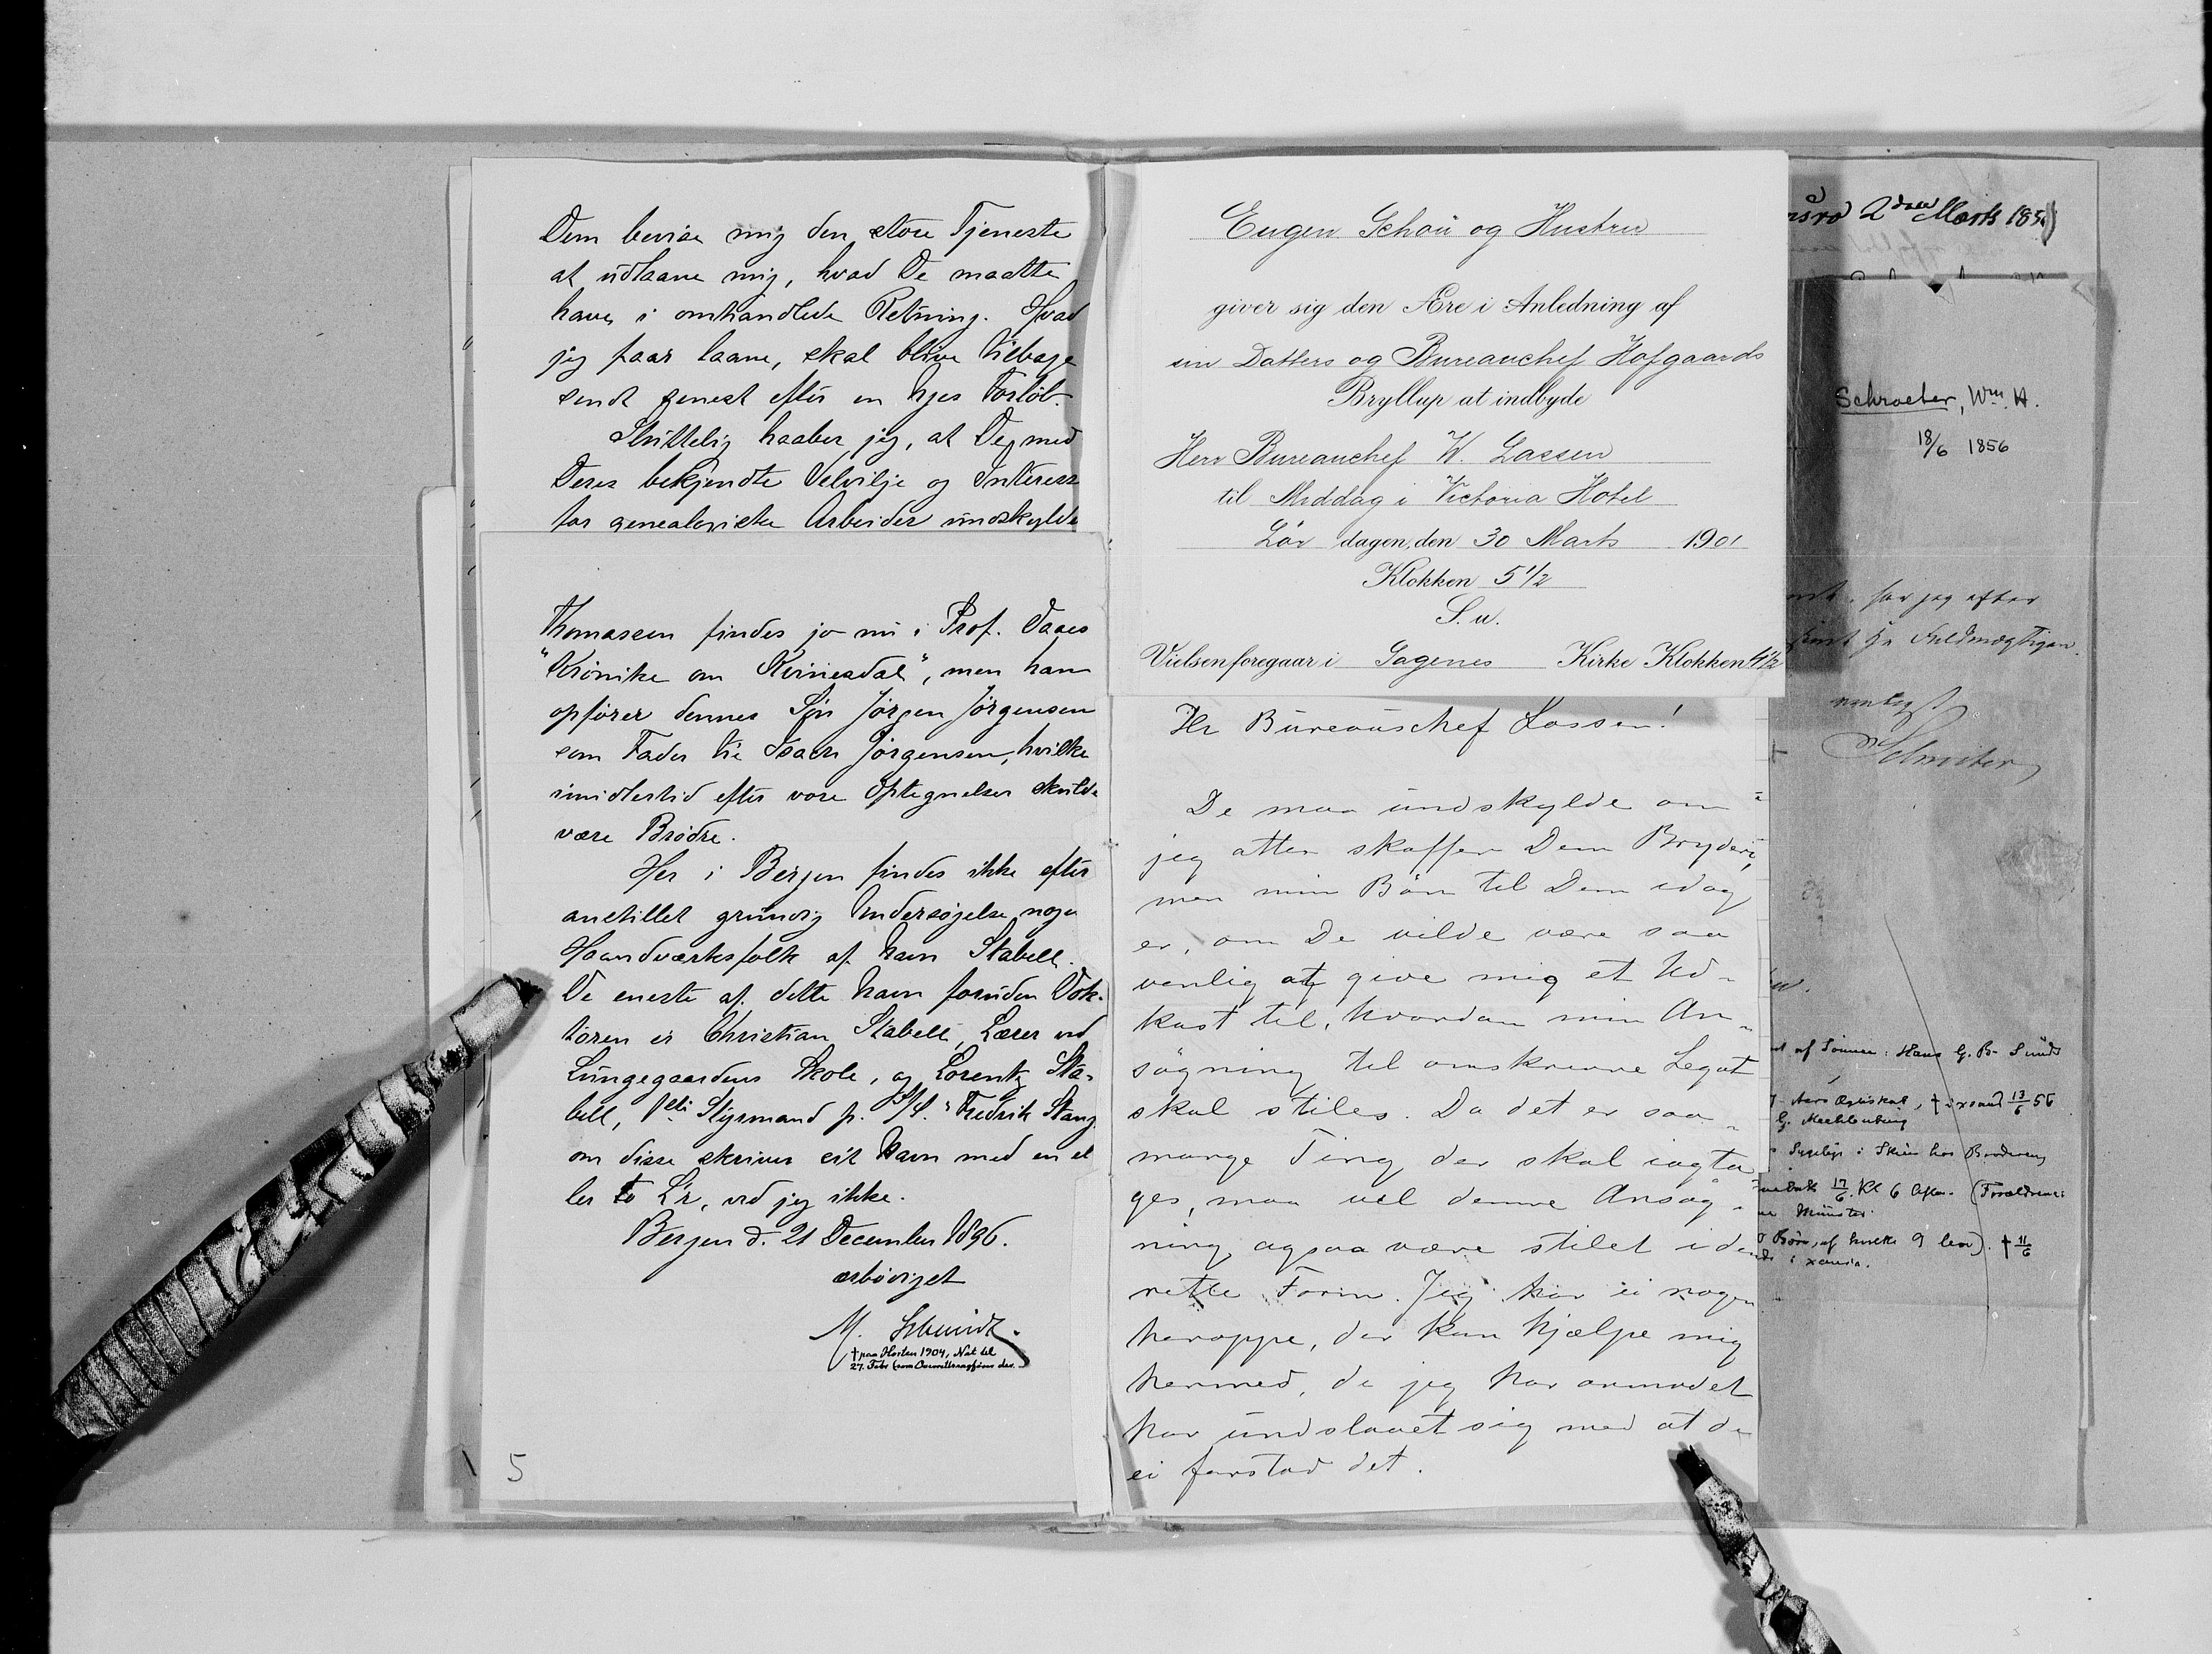 Dem bevise mig den store Tjeneste
at udlaane mig, hvad De maatte
have i omhandlede Retning. Hvad
jeg faar laane, skal blive tilbage
sendt senest efter en Uges Forløb.
Sluttelig haaber jeg, at De med
Deres bekjendte Velvilje og Interesse
for genealogiske Arbeider undskylde
Thomassen findes jo nu i Prof. Daaes
"Krønike om Kvinesdal", men han
opfører dennes Søn Jørgen Jørgensen
som Fader til Isach Jørgensen, hvilke
imidlertid efter vore Optegnelser skulde
være Brødre.
Her i Bergen findes ikke efter
anstillet grundig Undersøgelse noge
Haandværksfolk af Navn Stabell.
De eneste af dette Navn foruden Dok-
toren er Christian Stabell, Lærer ved
Lungegaardens Skole, og Lorentz Sta-
bell, Styrmand p. "Fredrik Stang
om disse skriver sit Navn med en el
ler to L'r, ved jeg ikke.
Bergen d. 21 December 1896.
ærbødigst
M. Schmidt.
† paa Horten 1904, Nat til
27. Febr (som Overretssagfører der.
5
Eugen Schou og Hustru
giver sig den Ære i Anledning af
sin Datters og Bureauchef Hofgaards
Bryllup at indbyde
Herr Bureauchef W. Lassen
til Middag i Victoria Hotel
Lør dagen, den 30 Marts 1901
Klokken 5 1/2
S. u.
Vielsen foregaar i Gagenes Kirke Klokken 4 1/2
Hr Bureauschef Lassen!
De maa undskylde om
jeg atter skaffer Dem Bryderi,
men min Bøn til Dem idag
er, om De vilde være saa
venlig at give mig et Ud-
kast til, hvordan min An-
søgning til omskrevne Legat
skal stiles. Da det er saa
mange Ting, der skal iagtta
ges, maa vel denne Ansøg-
ning ogsaa være stilet i den
rette Form. Jeg har ei nogen
heroppe, der kan hjælpe mig
hermed, de jeg har anmodet
har undslaaet sig med at de
ei forstod det.
2den Marts 185
Schroeter, Wm. H.
18/6 1856
har jeg efter
Fuldmægtigen.
Schroeter
af Sønner: Hans G. B. Sundt
Aars Ægteskab, † i xania 13/6 56
G. Mechlenburg
Sygeleje i Skien hos Broderen
17/6. Kl 6 Aften. (Forældrene:
Münster.
Børn, af hvilke 9 lever). † 11/6
i xania.